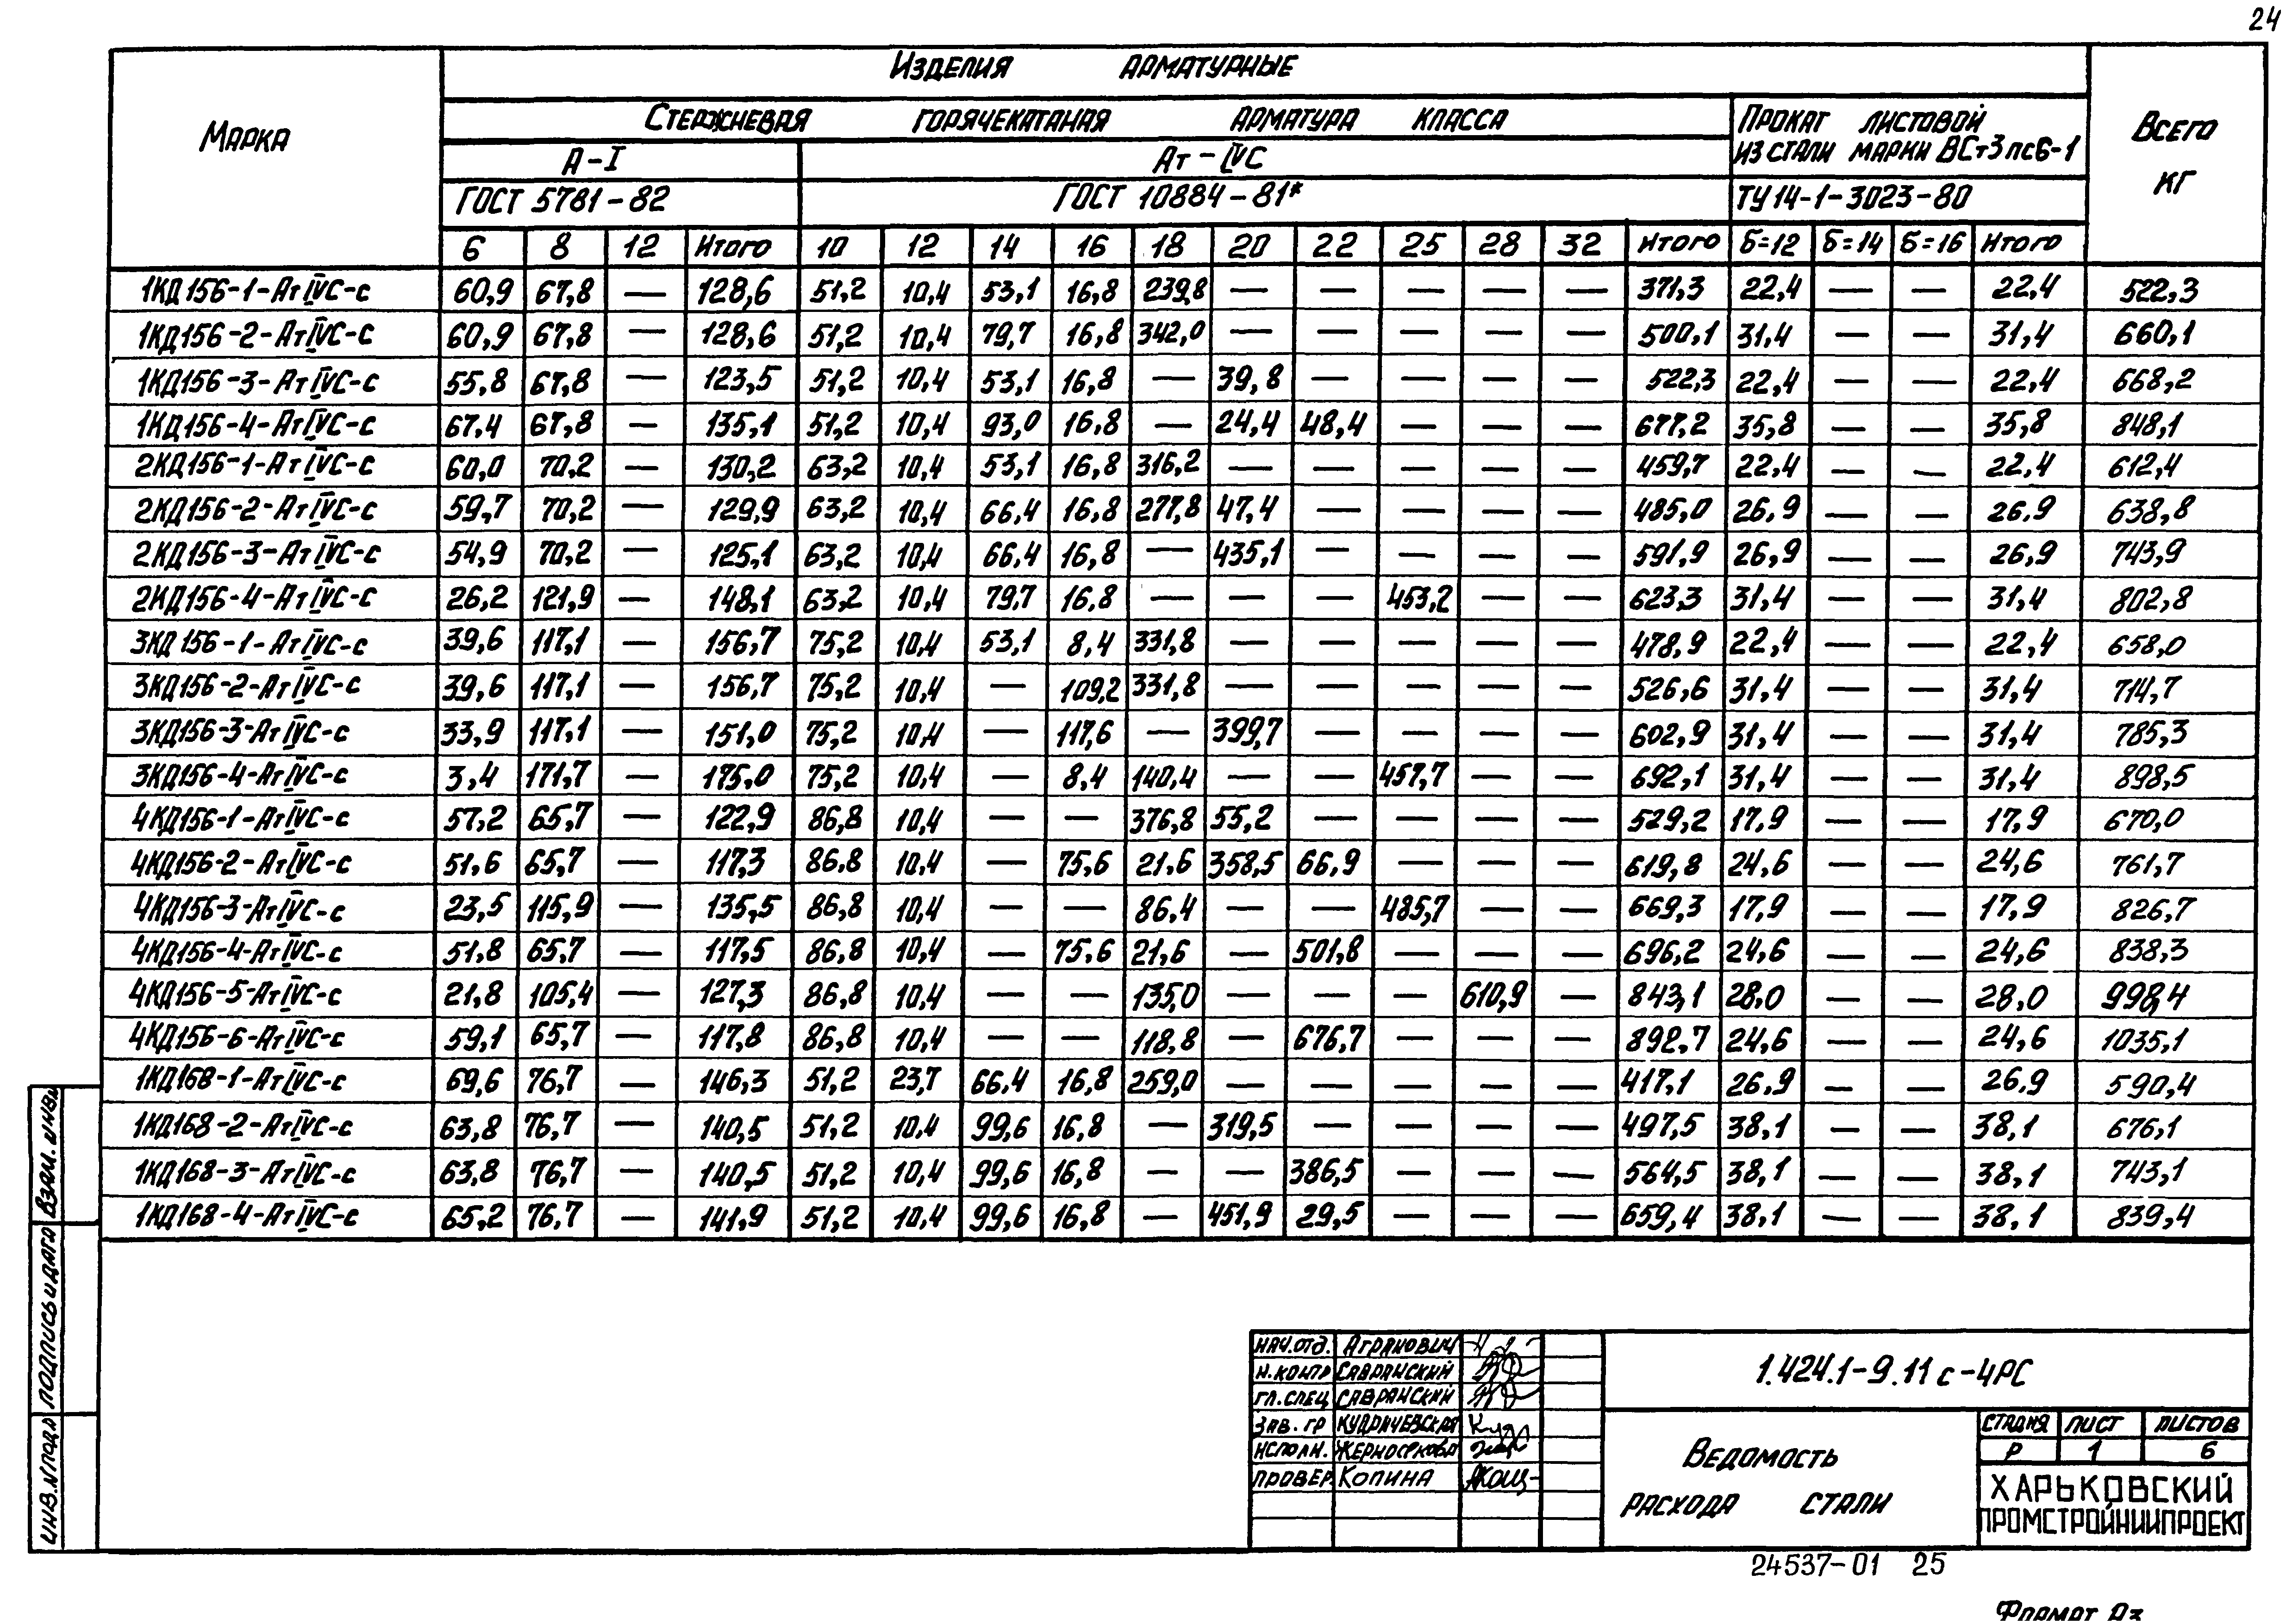 24
Изделия арматурные
Марка
Стержневая горячекатаная арматура класса
Прокат листовой из стали марки ВСт3пс6-1
Всего кг
А-I
Ат-IVС
ГОСТ 5781-82
ГОСТ 10884-81*
ТУ14-1-3023-80
6 8 12 Итого 10 12 14 16 18 20 22 25 28 32 Итого б=12 б=14 б=16 Итого
1КД156-1-АтIVС-с 60,9 67,8 — 128,6 51,2 10,4 53,1 16,8 239,8 — — — — — 371,3 22,4 — — 22,4 522,3
1КД156-2-АтIVС-с 60,9 67,8 — 128,6 51,2 10,4 79,7 16,8 342,0 — — — — — 500,1 31,4 — — 31,4 660,1
1КД156-3-АтIVС-с 55,8 67,8 — 123,5 51,2 10,4 53,1 16,8 — 39,8 — — — — 522,3 22,4 — — 22,4 668,2
1КД156-4-АтIVС-с 67,4 67,8 — 135,1 51,2 10,4 93,0 16,8 — 24,4 48,4 — — — 677,2 35,8 — — 35,8 848,1
2КД156-1-АтIVС-с 60,0 70,2 — 130,2 63,2 10,4 53,1 16,8 316,2 — — — — — 459,7 22,4 — — 22,4 612,4
2КД156-2-АтIVС-с 59,7 70,2 — 129,9 63,2 10,4 66,4 16,8 277,8 47,4 — — — — 485,0 26,9 — — 26.9 638,8
2КД156-3-АтIVС-с 54,9 70,2 — 125,1 63,2 10,4 66,4 16,8 — 435,1 — — — — 591,9 26,9 — — 26,9 743,9
2КД156-4-АтIVС-с 26,2 121,9 — 148,1 63,2 10,4 79,7 16,8 — — — 453,2 — — 623,3 31,4 — — 31,4 802,8
3КД156-1-АтIVС-с 39,6 117,1 — 156,7 75,2 10,4 53,1 8,4 331,8 — — — — — 478,9 22,4 — — 22,4 658,0
3КД156-2-АтIVС-с 39,6 117,1 — 156,7 75,2 10,4 — 109,2 331,8 — — — — — 526,6 31,4 — — 31,4 714,7
3КД156-3-АтIVС-с 33,9 117,1 — 151,0 75,2 10,4 — 117,6 — 399,7 — — — — 602,9 31,4 — — 31,4 785,3
3КД156-4-АтIVС-с 3,4 171,7 — 175,0 75,2 10,4 — 8,4 140,4 — — 457,7 — — 692,1 31,4 — — 31,4 898,5
4КД156-1-АтIVС-с 57,2 65,7 — 122,9 86,8 10,4 — — 376,8 55,2 — — — — 529,2 17,9 — — 17,9 670,0
4КД156-2-АтIVС-с 51,6 65,7 — 117,3 86,8 10,4 — 75,6 21,6 358,5 66,9 — — — 619,8 24,6 — — 24,6 761,7
4КД156-3-АтIVС-с 23,5 115,9 — 135,5 86,8 10,4 — — 86,4 — — 485,7 — — 669,3 17,9 — — 17,9 826,7
4КД156-4-АтIVС-с 51,8 65,7 — 117,5 86,8 10,4 — 75,6 21,6 — 501,8 — — — 696,2 24,6 — — 24,6 838,3
4КД156-5-АтIVС-с 21,8 105,4 — 127,3 86,8 10,4 — — 135,0 — — — 610,9 — 843,1 28,0 — — 28,0 998,4
4КД156-6-АтIVС-с 59,1 65,7 — 117,8 86,8 10,4 — — 118,8 — 676,7 — — — 892,7 24,6 — — 24,6 1035,1
1КД168-1-АтIVС-с 69,6 76,7 — 146,3 51,2 23,7 66,4 16,8 259,0 — — — — — 417,1 26,9 — — 26,9 590,4
1КД168-2-АтIVС-с 63,8 76,7 — 140,5 51,2 10,4 99,6 16,8 — 319,5 — — — — 497,5 38,1 — — 38,1 676,1
1КД168-3-АтIVС-с 63,8 76,7 — 140,5 51,2 10,4 99,6 16,8 — — 386,5 — — — 564,5 38,1 — — 38,1 743,1
1КД168-4-АтIVС-с 65,2 76,7 — 141,9 51,2 10,4 99,6 16,8 — 451,9 29,5 — — — 659,4 38,1 — — 38,1 839,4
Взам. инв.
Подпись и дата
Инв. N подл
Нач.отд. Агранович
Н.контр Савранский
Гл.спец Савранский
Зав. гр Кудрячевская
Исполн.
Провер Копина
1.424.1-9.11с-4РС
Ведомость
расхода стали
Стадия Лист Листов
Р 1 6
Харьковский
Промстройниипроект
24537-01 25
Формат А3